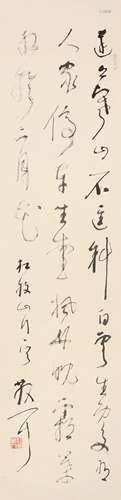 遠上寒山石徑斜白雲生處有
人家停車坐愛楓林晚霜葉
紅於二月花 杜牧山行之